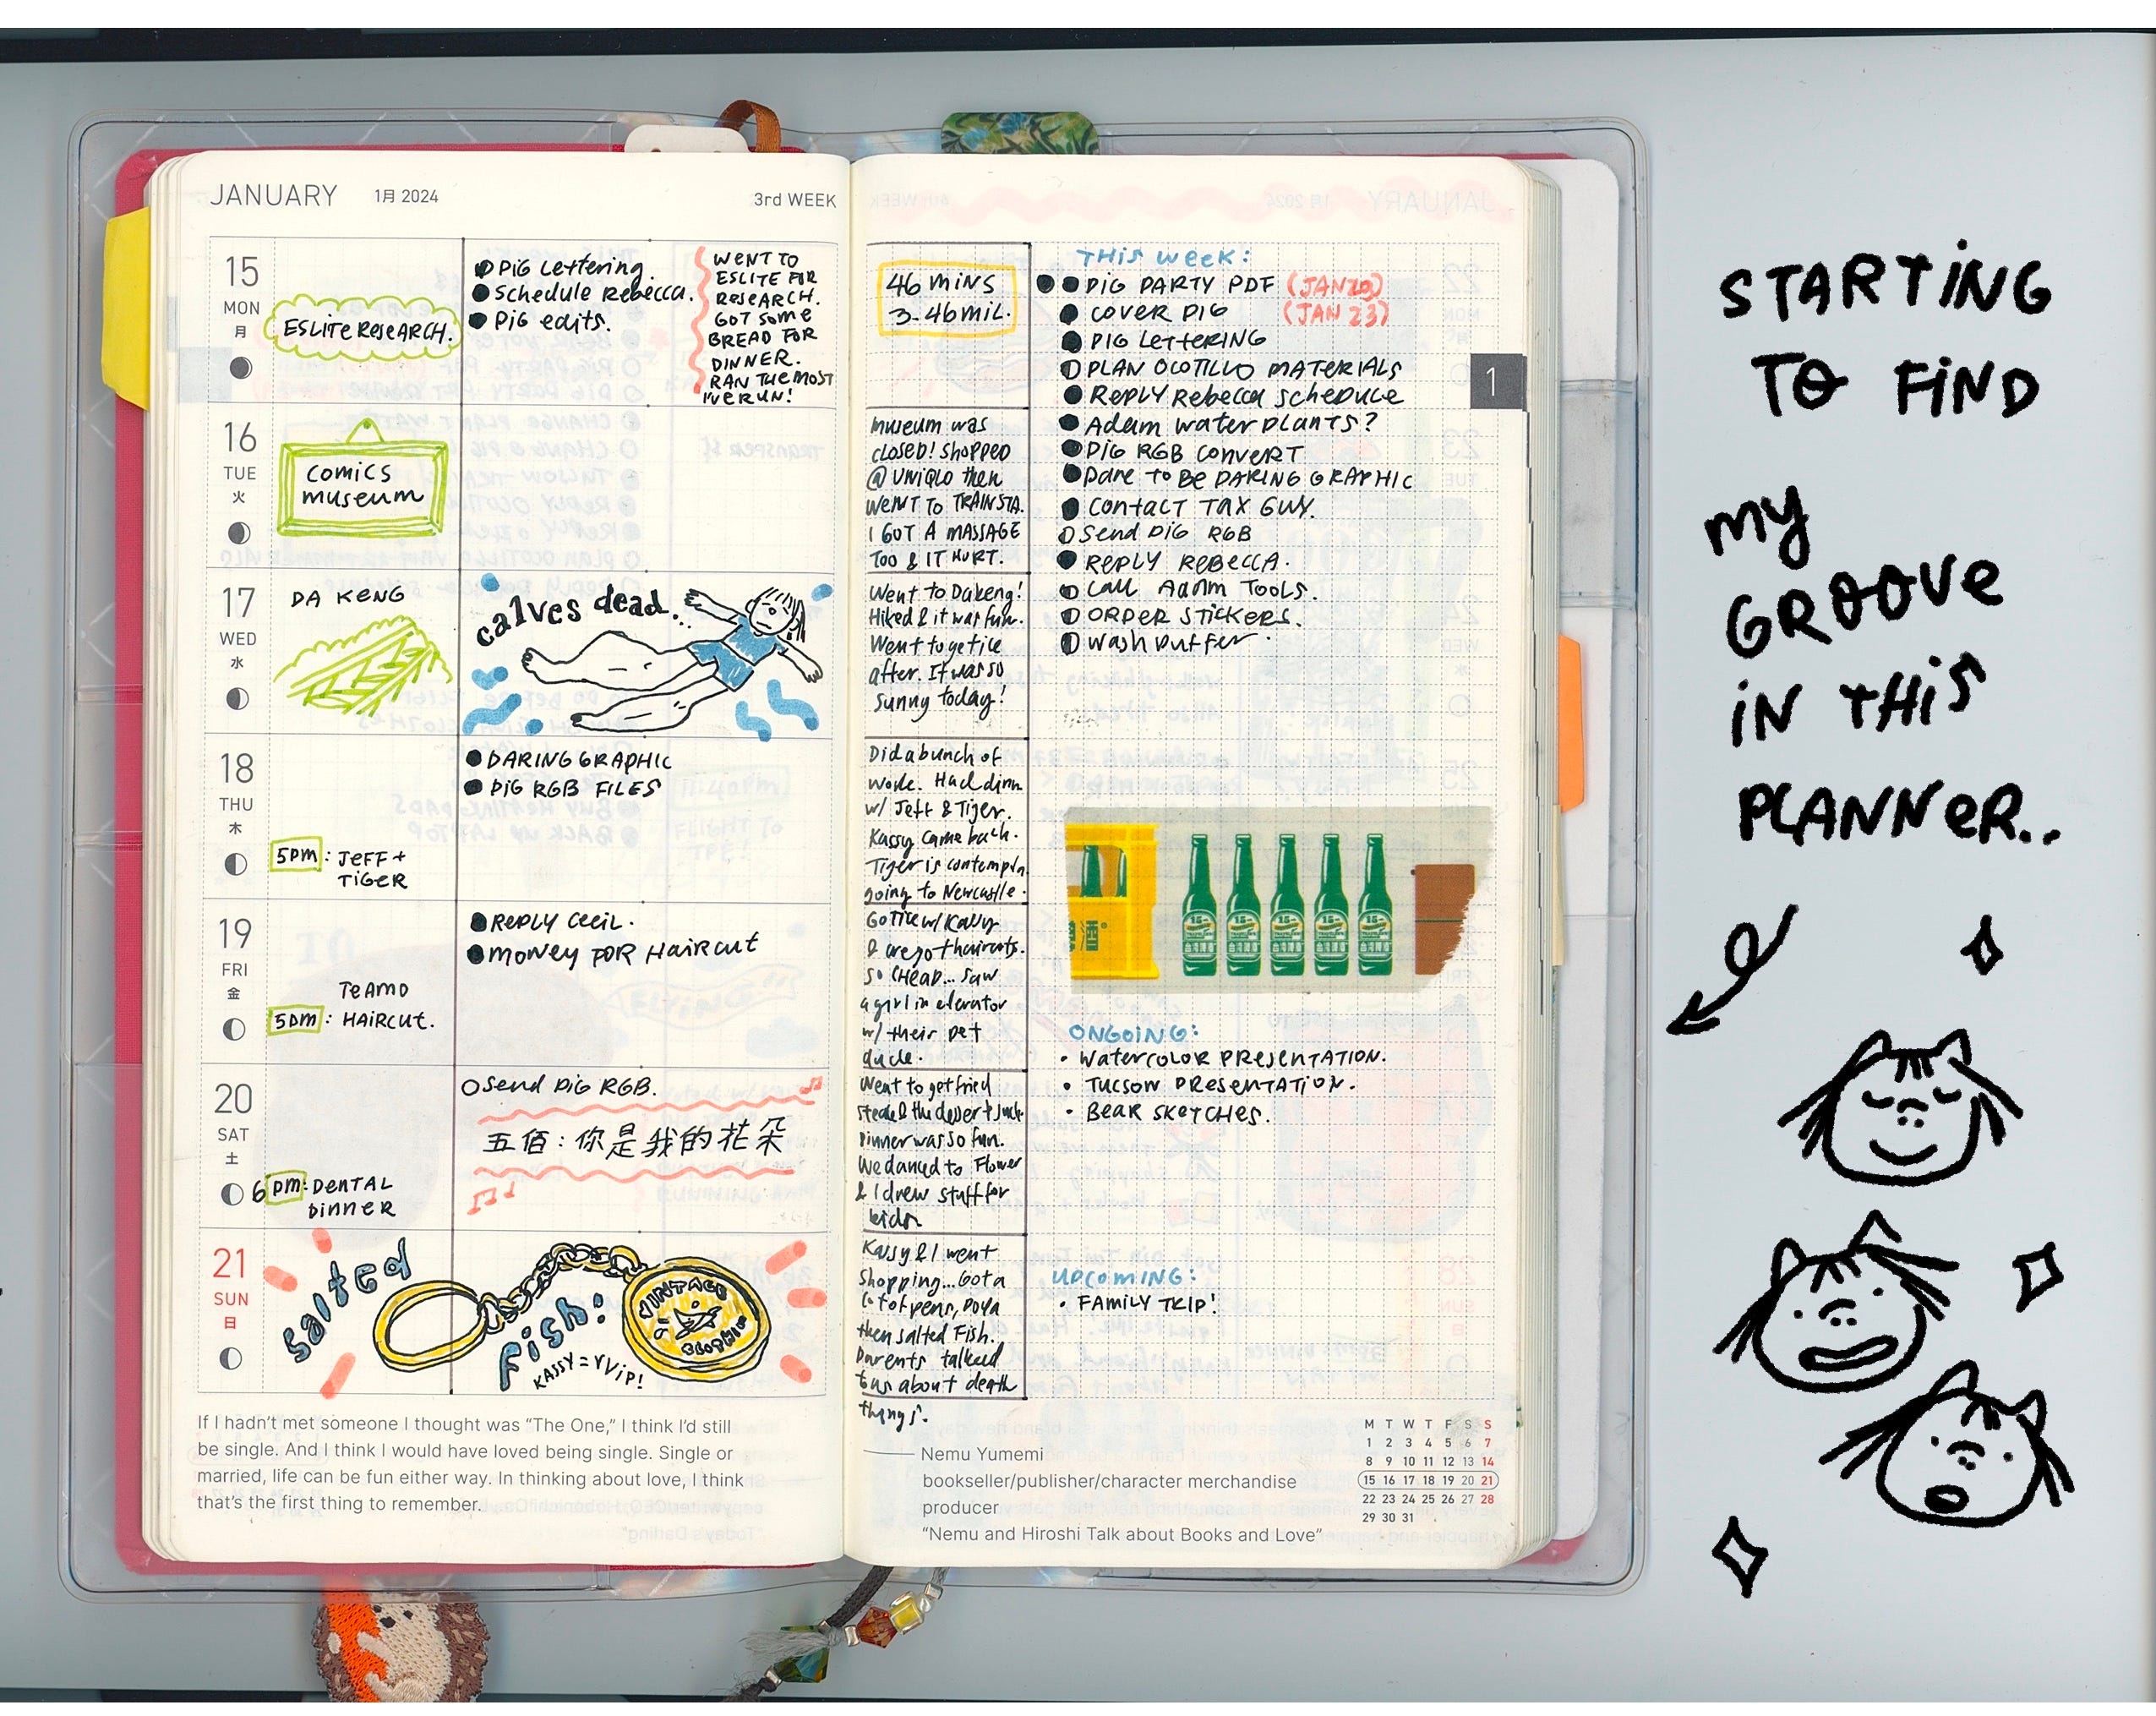 JANUARY 1月 2024 3rd WEEK
15
MON
月
ESLITE RESEARCH.
PIG Lettering.
Schedule Rebecca.
PIG edits.
WENT TO
ESLITE FOR
RESEARCH.
GOT SOME
BREAD FOR
DINNER.
RAN THE MOST
I'VE RUN!
16
TUE
火
COMICS
museum
17
WED
水
DA KENG
calves dead...
18
THU
木
DARING GRAPHIC
PIG RGB FILES
5PM: JEFF +
TIGER
19
FRI
金
REPLY CECIL.
MONEY FOR HAIRCUT
TEAMO
5PM: HAIRCUT.
20
SAT
土
Send PIG RGB.
五佰:你是我的花朵
6PM: DENTAL
DINNER
21
SUN
日
Salted
Fish!
VINTAGE
KASSY = VVIP!
If I hadn't met someone I thought was “The One,” I think I'd still
be single. And I think I would have loved being single. Single or
married, life can be fun either way. In thinking about love, I think
that's the first thing to remember.
46 MINS
3.46 MIL.
museum was
closed! shopped
@ UNIQLO then
WENT TO TRAIN STA.
I GOT A MASSAGE
TOO & IT HURT.
Went to Dakeng!
Hiked & it was fun.
Went to get ice
after. It was so
sunny today!
Did a bunch of
work. Had dinn
w/ Jeff & Tiger.
Kassy came back.
Tiger is contempla
going to Newcastle.
Got ice w/ Kassy
& we got haircuts.
SO CHEAP... Saw
a girl in elevator
w/ their pet
duck.
Went to get fried
steak & the dessert
Dinner was so fun.
We danced to Flower
& I drew stuff for
kids.
Kassy & I went
shopping... Got a
lot of pens, Poya
then salted Fish.
Parents talked
to us about death
things.
THIS WEEK:
PIG PARTY PDF (JAN 20)
COVER PIG (JAN 23)
PIG LETTERING
PLAN OCOTILLO MATERIALS
REPLY Rebecca schedule
Adam water plants?
PIG RGB CONVERT
Dare TO BE DARING GRAPHIC
CONTACT TAX GUY.
Send PIG RGB
REPLY REBECCA.
Call Adam Tools.
ORDER STICKERS.
Wash puffer.
1
ONGOING:
• WATERCOLOR PRESENTATION.
• TUCSON PRESENTATION.
• BEAR SKETCHES.
UPCOMING:
• FAMILY TRIP!
Nemu Yumemi
bookseller/publisher/character merchandise
producer
“Nemu and Hiroshi Talk about Books and Love”
M T W T F S S
1 2 3 4 5 6 7
8 9 10 11 12 13 14
15 16 17 18 19 20 21
22 23 24 25 26 27 28
29 30 31
STARTING
TO FIND
MY
GROOVE
IN THIS
PLANNER..